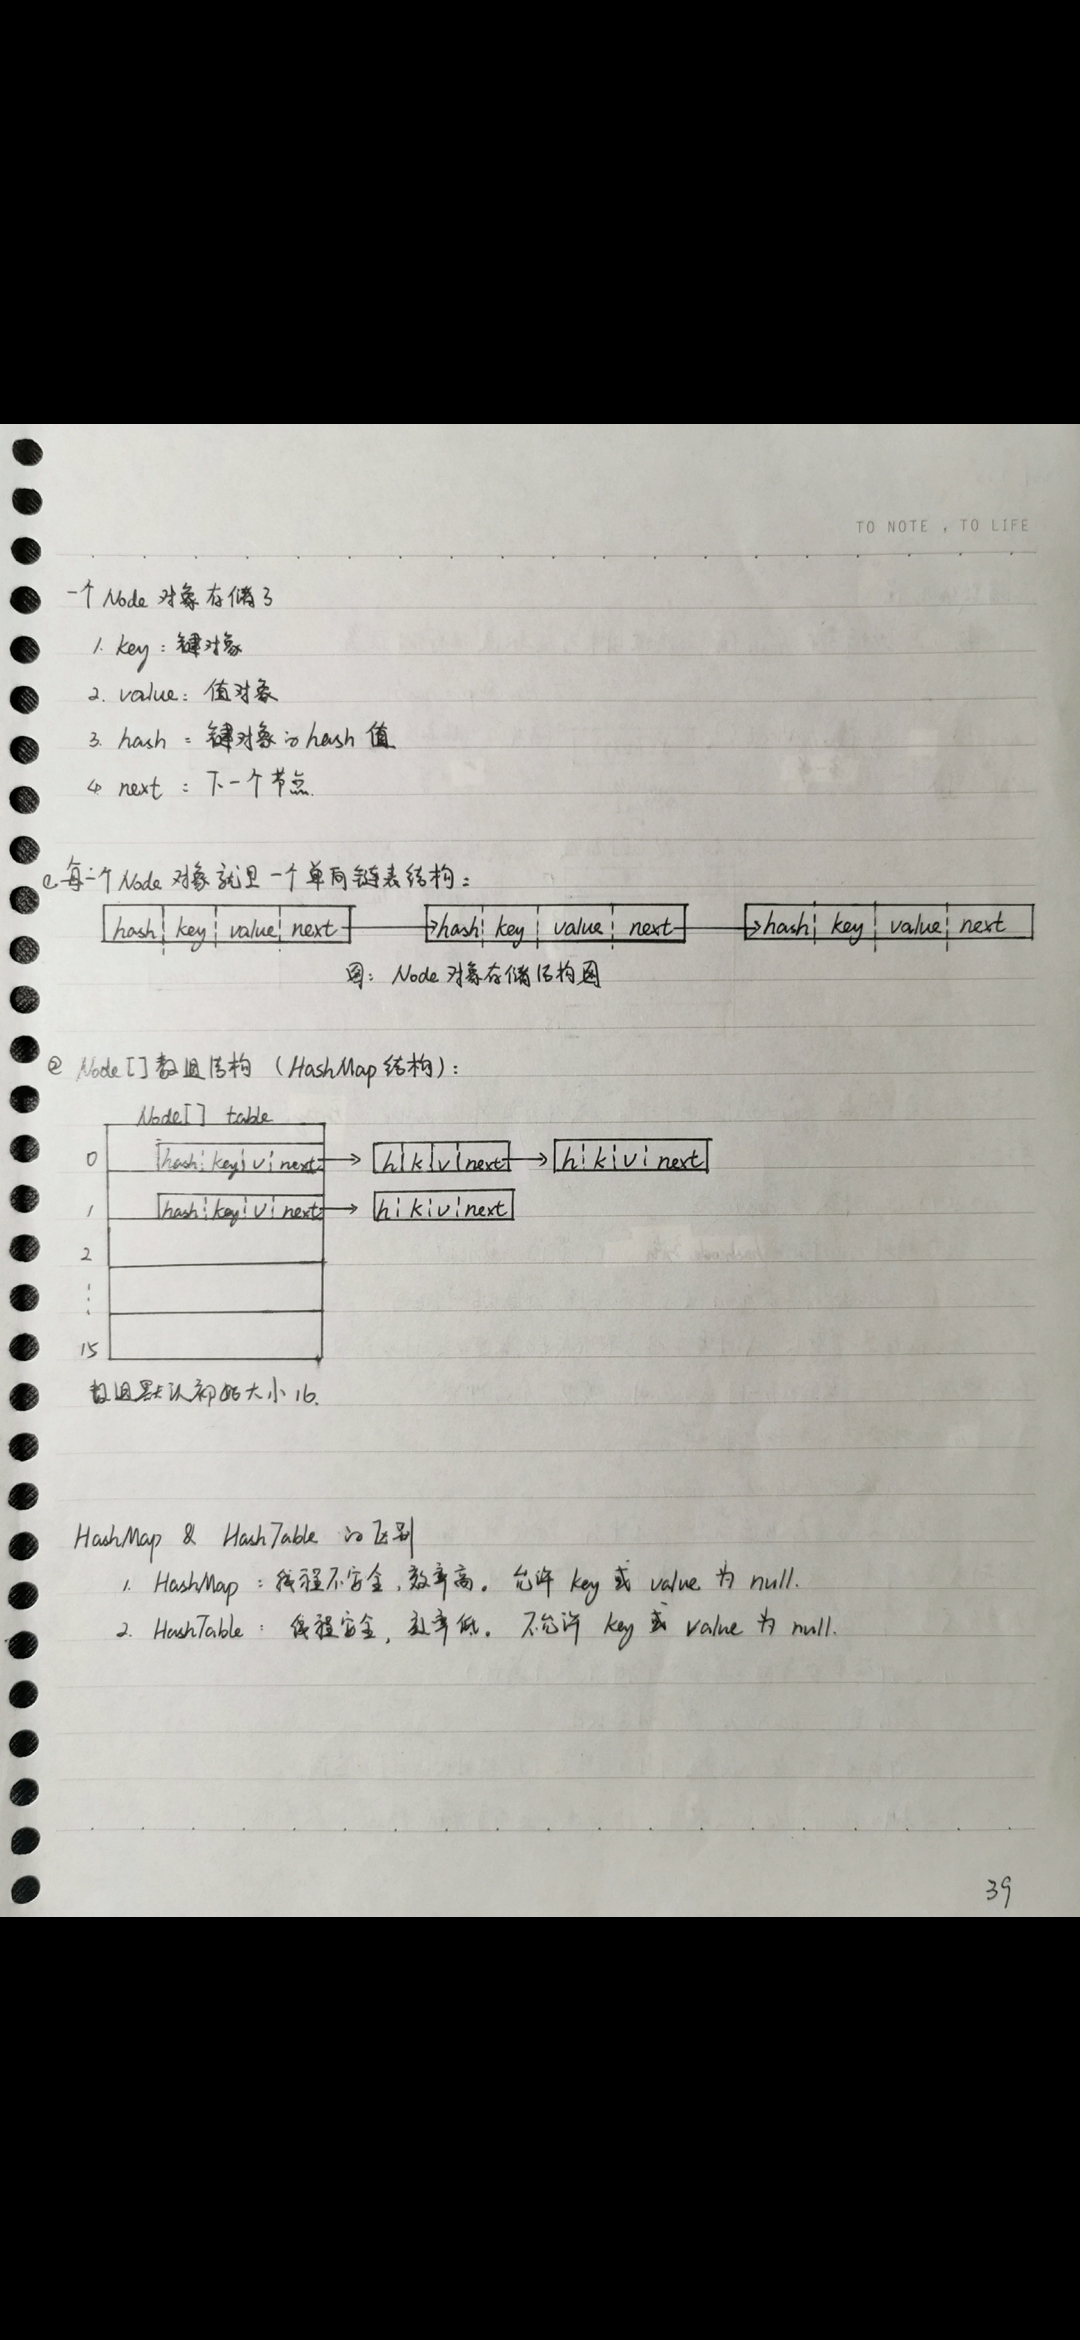 TO NOTE , TO LIFE
一个 Node 对象存储了
1. key : 键对象
2. value: 值对象
3. hash : 键对象的 hash 值
4. next : 下一个节点.
每一个 Node 对象就是一个单向链表结构:
hash key value next hash key value next hash key value next
图: Node 对象存储结构图
② Node[] 数组结构 (HashMap 结构):
Node[] table
0 hash key v next h k v next h k v next
1 hash key v next h k v next
2
⋮
15
数组默认初始大小 16.
HashMap & HashTable 的区别
1. HashMap : 线程不安全,效率高。允许 key 或 value 为 null.
2. HashTable : 线程安全, 效率低。 不允许 key 或 value 为 null.
39